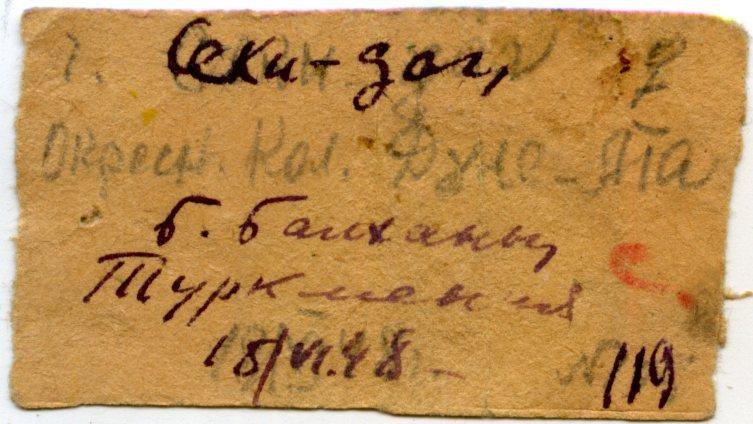 Секи-даг,
Окрест. Кол. Дуне-Ата
Б. Балханы,
Туркмения
18/VI.48-
119